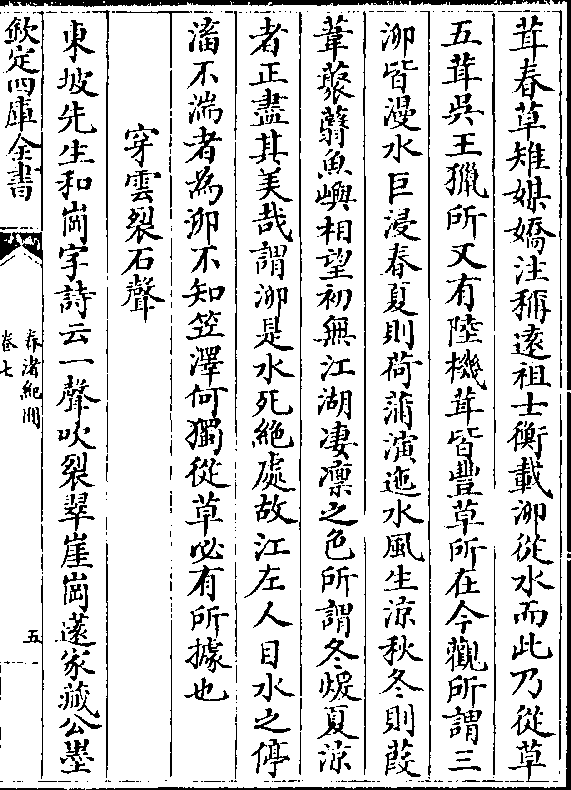 茸春草雉媒嬌注稱遠祖士衡載泖從水而此乃從草
五茸吳王獵所又有陸機茸皆豐草所在今觀所謂三
泖皆漫水巨浸春夏則荷蒲演迤水風生涼秋冬則葭
葦藂蘙魚嶼相望初無江湖凄凛之色所謂冬煖夏涼
者正盡其美哉謂泖是水死絶處故江左人目水之停
滀不湍者為泖不知笠澤何獨從草必有所據也
穿雲裂石聲
東坡先生和崗字詩云一聲吹裂翠崖崗薳家藏公墨
欽定四庫全書
春渚紀聞
卷七
五